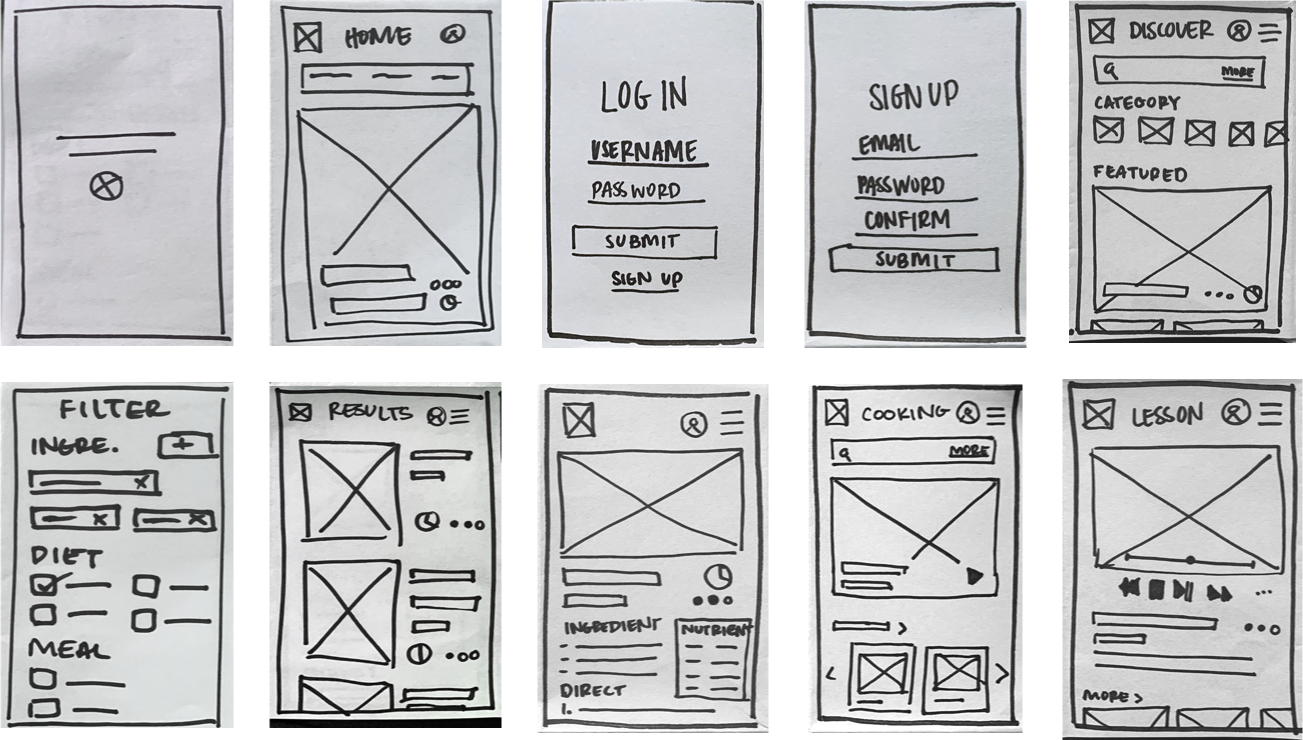 HOME
LOG IN
USERNAME
PASSWORD
SUBMIT
SIGN UP
SIGN UP
EMAIL
PASSWORD
CONFIRM
SUBMIT
DISCOVER
MORE
CATEGORY
FEATURED
FILTER
INGRE. +
DIET
MEAL
RESULTS
INGREDIENT
NUTRIENT
DIRECT
1.
COOKING
MORE
LESSON
MORE >